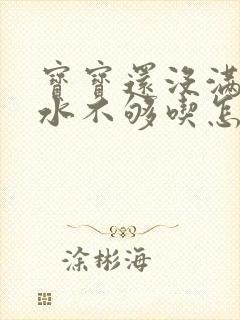 寶寶還沒滿
水不够喫怎
涂彬海